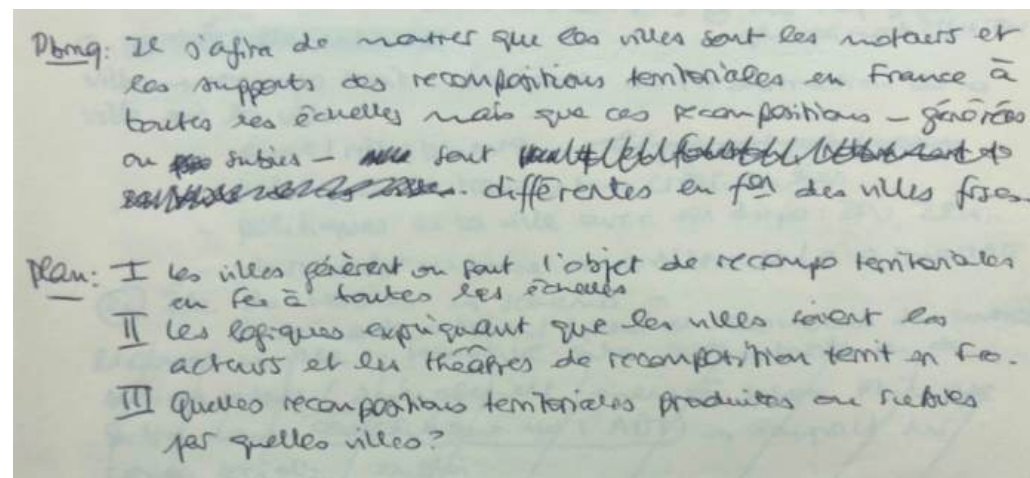 Pbmq: Il s'agira de montrer que les villes sont les moteurs et
les supports des recompositions territoriales en France à
toutes les échelles mais que ces recompositions - générées
ou subies - sont
différentes en fon des villes fses.
Plan: I Les villes génèrent ou sont l'objet de recompo territoriales
en Fce à toutes les échelles
II Les logiques expliquant que les villes soient les
acteurs et les théâtres de recomposition territ en Fce.
III Quelles recompositions territoriales produites ou subies
par quelles villes?